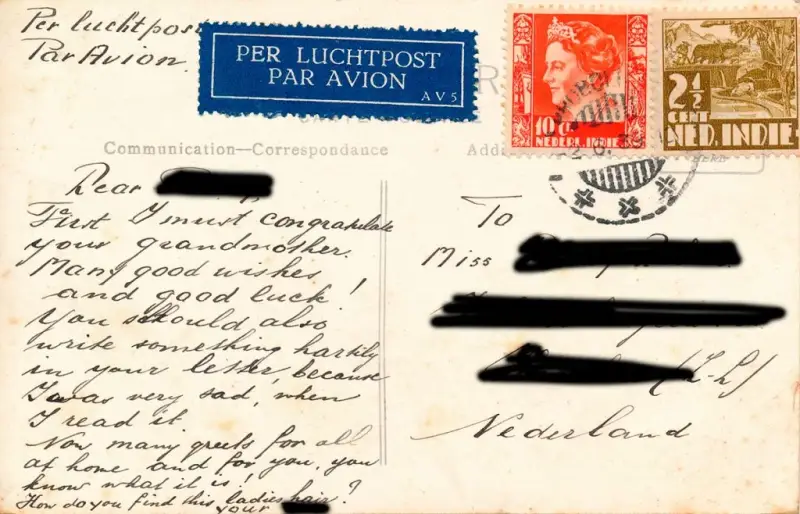 Per luchtpost
Par Avion.
PER LUCHTPOST
PAR AVION
AV5
10 ct
NEDERL. INDIE
2½
CENT
NED. INDIE
Communication—Correspondance
Dear
First I must congratulate
your grandmother.
Many good wishes
and good luck!
You should also
write something hartily
in your letter, because
I was very sad, when
I read it.
Now many greets for all
at home and for you, you
know what it is!
How do you find this ladies hair?
your
To
Miss
(Z-L)
Nederland